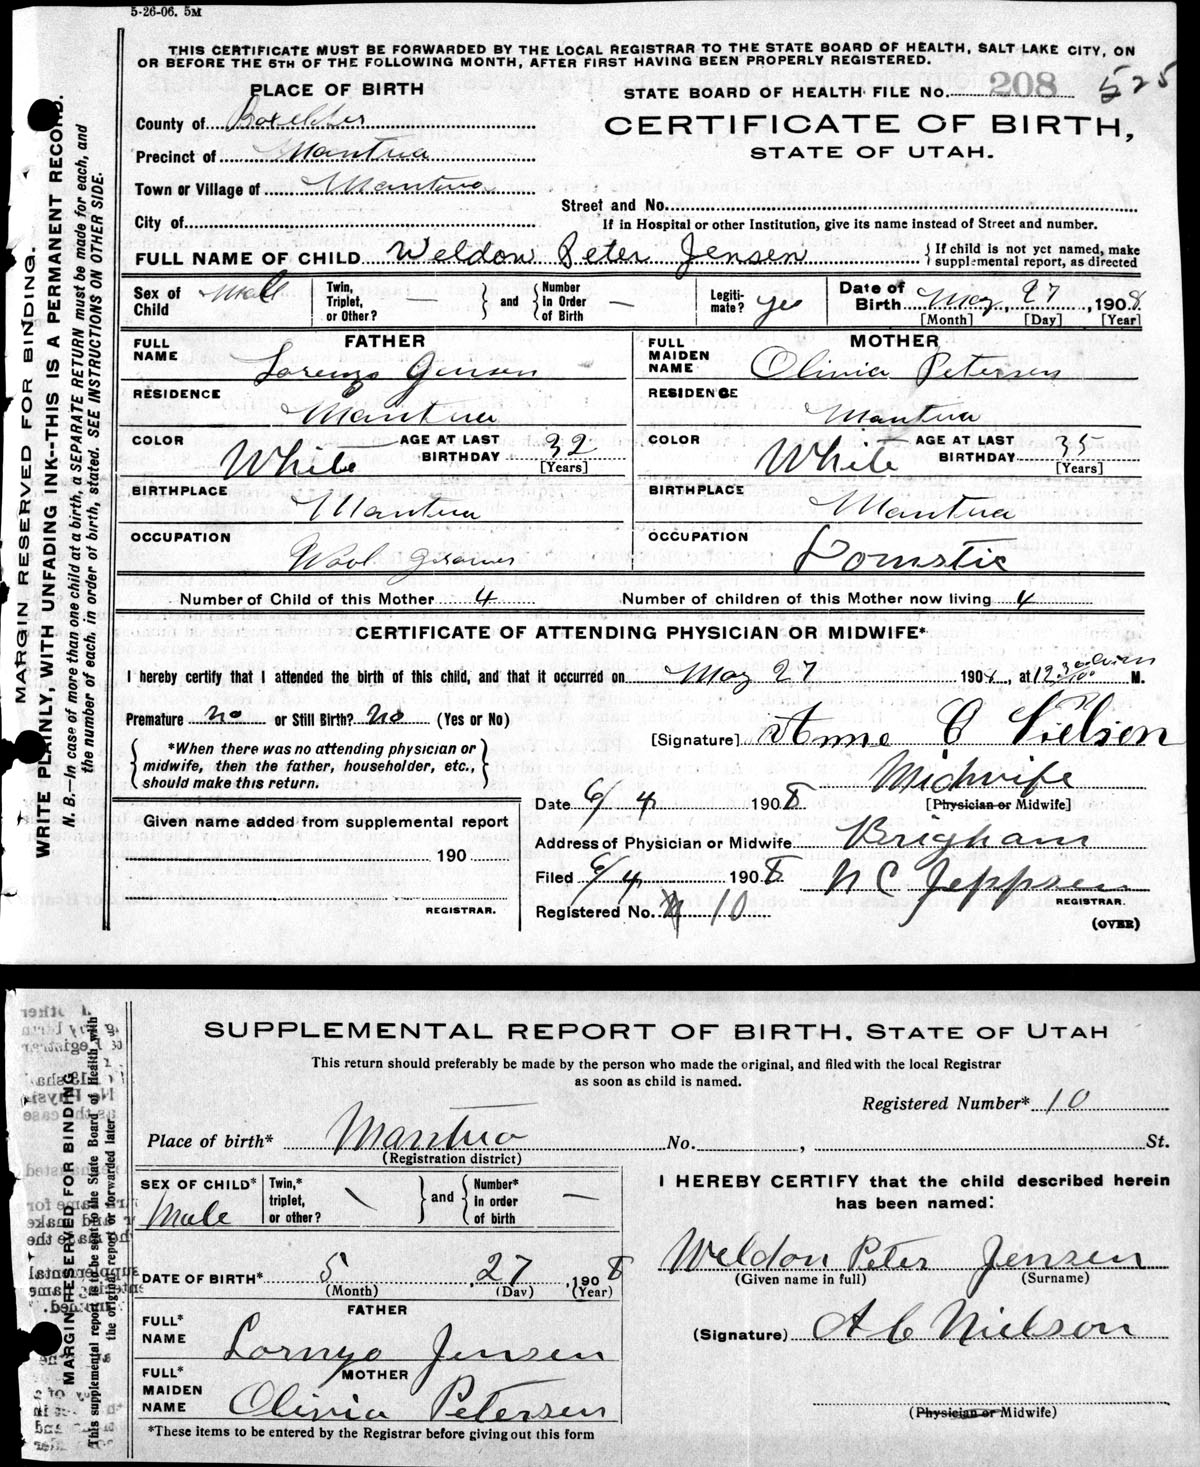 5-26-06. 5M
THIS CERTIFICATE MUST BE FORWARDED BY THE LOCAL REGISTRAR TO THE STATE BOARD OF HEALTH, SALT LAKE CITY, ON
OR BEFORE THE 5TH OF THE FOLLOWING MONTH, AFTER FIRST HAVING BEEN PROPERLY REGISTERED.
PLACE OF BIRTH
STATE BOARD OF HEALTH FILE No. 208 525
County of Boxelder
CERTIFICATE OF BIRTH,
STATE OF UTAH.
Precinct of Mantua
Town or Village of Mantua
Street and No.
City of
If in Hospital or other Institution, give its name instead of Street and number.
FULL NAME OF CHILD Weldon Peter Jensen {If child is not yet named, make supplemental report, as directed
Sex of Child Male
Twin, Triplet, or Other? — } and { Number In Order of Birth —
Legiti-mate? yes
Date of Birth May 27, 1908
[Month] [Day] [Year]
FATHER
FULL NAME Lorenzo Jensen
RESIDENCE
Mantua
COLOR White AGE AT LAST BIRTHDAY 32
[Years]
BIRTHPLACE
Mantua
OCCUPATION
Wool grower
MOTHER
FULL MAIDEN NAME Olivia Petersen
RESIDENCE
Mantua
COLOR White AGE AT LAST BIRTHDAY 35
[Years]
BIRTHPLACE
Mantua
OCCUPATION
Domstic
Number of Child of this Mother 4 Number of children of this Mother now living 4
CERTIFICATE OF ATTENDING PHYSICIAN OR MIDWIFE*
I hereby certify that I attended the birth of this child, and that it occurred on May 27 1908, at 12 M.
Premature no or Still Birth? no (Yes or No)
[Signature] Anne C Nielsen
{ *When there was no attending physician or
midwife, then the father, householder, etc.,
should make this return. }
Midwife
[Physician or Midwife]
Date 6/4 1908
Address of Physician or Midwife Brigham
Filed 6/4 1908 N C Jeppsen
REGISTRAR.
Registered No. 10
(OVER)
Given name added from supplemental report
190
REGISTRAR.
MARGIN RESERVED FOR BINDING.
WRITE PLAINLY, WITH UNFADING INK--THIS IS A PERMANENT RECORD.
N. B.—In case of more than one child at a birth, a SEPARATE RETURN must be made for each, and
the number of each, in order of birth, stated. SEE INSTRUCTIONS ON OTHER SIDE.
SUPPLEMENTAL REPORT OF BIRTH, STATE OF UTAH
This return should preferably be made by the person who made the original, and filed with the local Registrar
as soon as child is named.
Registered Number* 10
Place of birth* Mantua No. , St.
(Registration district)
SEX OF CHILD*
Male
Twin,* triplet, or other? \ } and { Number* In order of birth —
DATE OF BIRTH* 5 , 27 , 1908
(Month) (Day) (Year)
FATHER
FULL* NAME Lornyo Jensen
MOTHER
FULL* MAIDEN NAME Olivia Petersen
*These items to be entered by the Registrar before giving out this form
I HEREBY CERTIFY that the child described herein
has been named:
Weldon Peter Jensen
(Given name in full) (Surname)
(Signature) A C Nielson
(Physician or Midwife)
MARGIN RESERVED FOR BINDING
This supplemental report is to be sent to the State Board of Health with
the original report or forwarded later